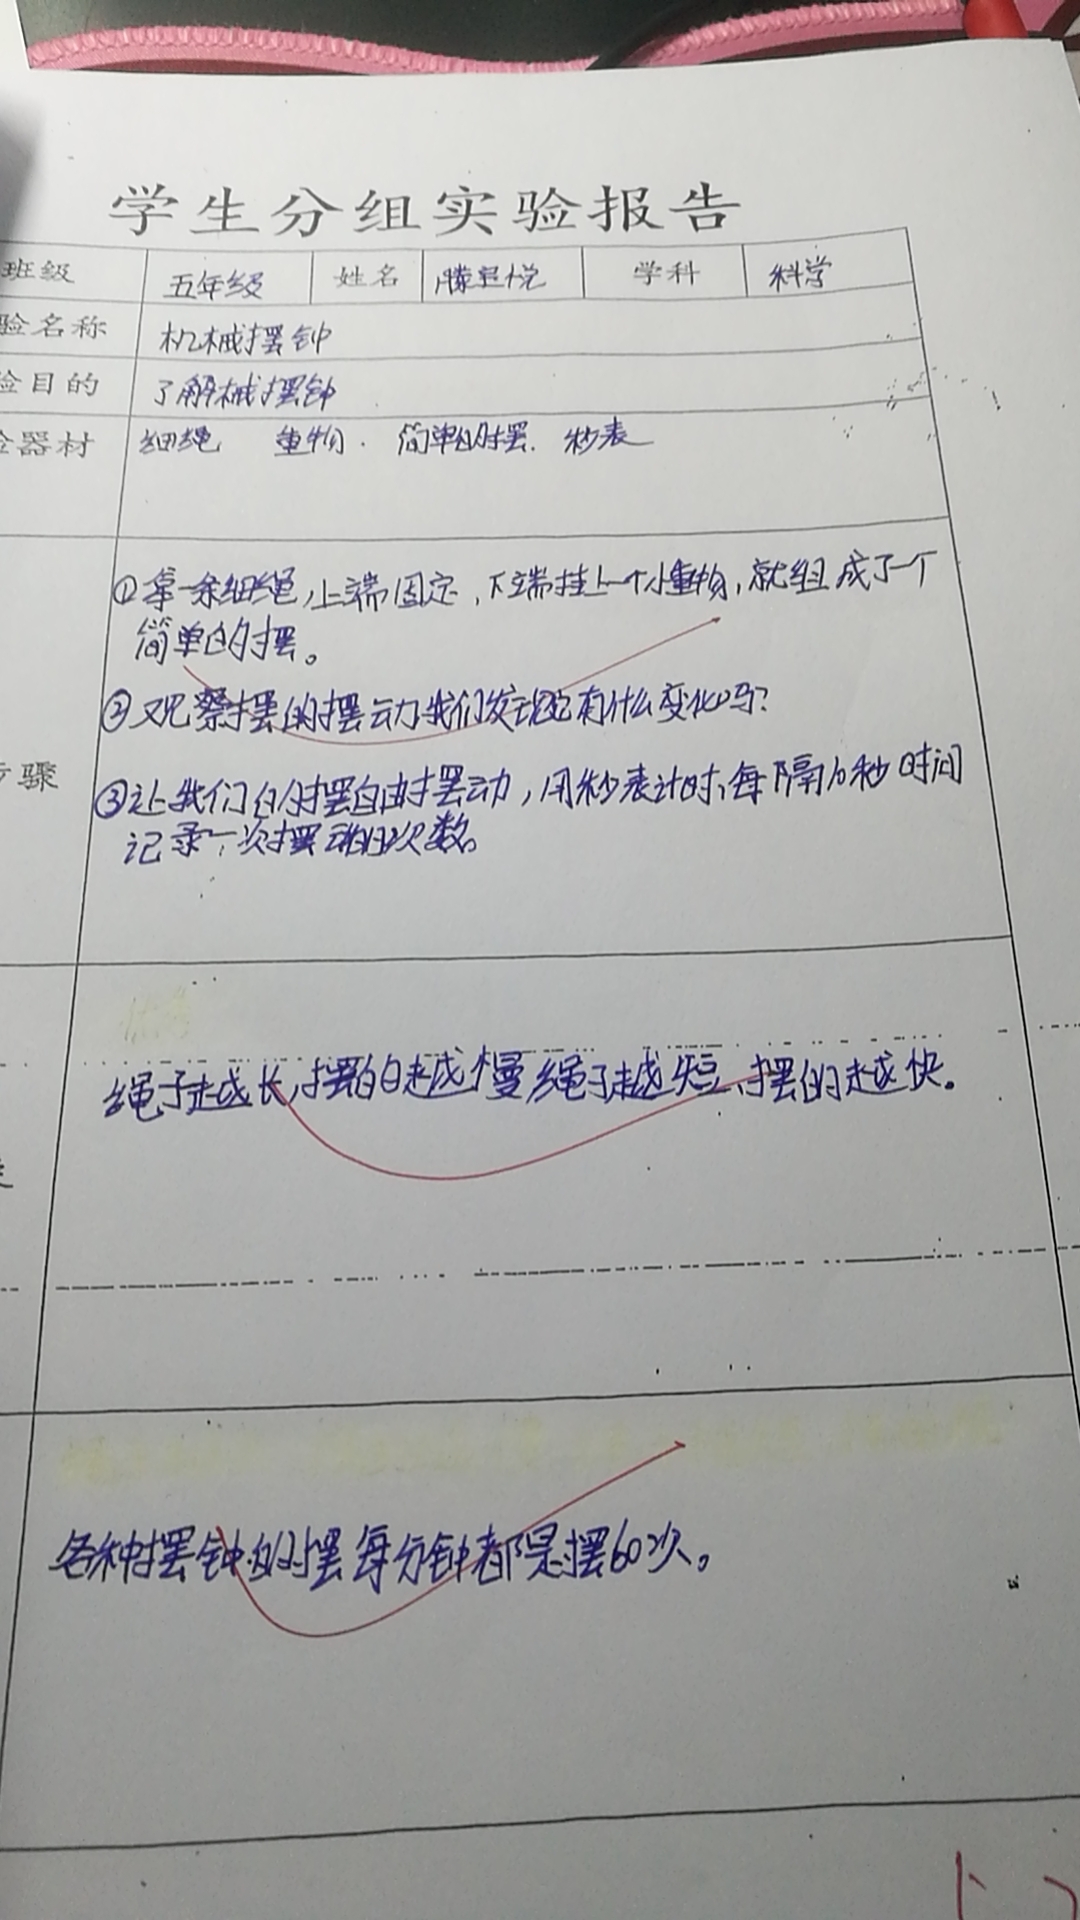 学生分组实验报告
班级 五年级 姓名 滕 悦 学科 科学
验名称 机械摆钟
验目的 了解械摆钟
验器材 细绳 重物. 简单的摆. 秒表
①拿一条细绳,上端固定,下端挂上一个小重物,就组成了一个
简单的摆。
②观察摆的摆动我们发现它有什么变化吗?
步骤
③让我们的摆自由摆动,用秒表计时,每隔10秒时间
记录一次摆动的次数。
绳子越长,摆的越慢绳子越短,摆的越快。
各种摆钟的摆每分钟都是摆60次。